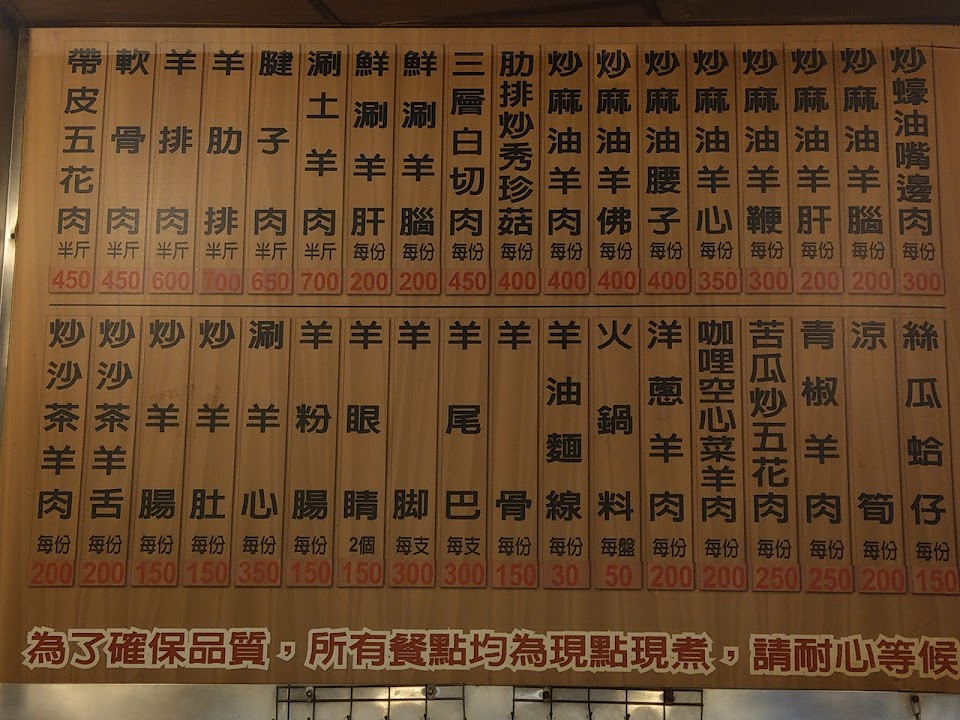 帶皮五花肉 半斤 450
軟骨肉 半斤 450
羊排肉 半斤 600
羊肋排 半斤 700
腱子肉 半斤 650
涮土羊肉 半斤 700
鮮涮羊肝 每份 200
鮮涮羊腦 每份 200
三層白切肉 每份 450
肋排炒秀珍菇 每份 400
炒麻油羊肉 每份 400
炒麻油羊佛 每份 400
炒麻油腰子 每份 400
炒麻油羊心 每份 350
炒麻油羊鞭 每份 300
炒麻油羊肝 每份 200
炒麻油羊腦 每份 200
炒蠔油嘴邊肉 每份 300
炒沙茶羊肉 每份 200
炒沙茶羊舌 每份 200
炒羊腸 每份 150
炒羊肚 每份 150
涮羊心 每份 350
羊粉腸 每份 150
羊眼睛 2個 150
羊脚 每支 300
羊尾巴 每支 300
羊骨 每份 150
羊油麵線 每份 30
火鍋料 每盤 50
洋蔥羊肉 每份 200
咖哩空心菜羊肉 每份 200
苦瓜炒五花肉 每份 250
青椒羊肉 每份 250
涼筍 每份 200
絲瓜蛤仔 每份 150
為了確保品質，所有餐點均為現點現煮，請耐心等候